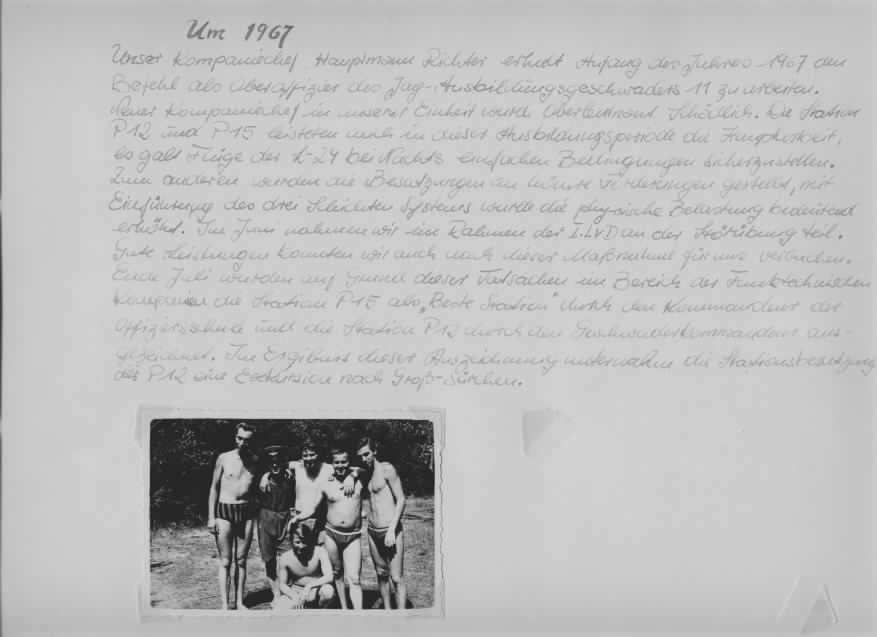 Um 1967
Unser Kompaniechef Hauptmann Richter erhielt Anfang des Jahres 1967 den
Befehl als Oberoffizier des Jag-Ausbildungsgeschwaders 11 zu arbeiten.
Neuer Kompaniechef in unserer Einheit wurde Oberleutnant Schädlich. Die Station
P12 und P15 leisteten auch in dieser Ausbildungsperiode die Hauptarbeit,
es galt Flüge der L-29 bei Nachts einfachen Bedingungen sicherzustellen.
Zum anderen wurden die Besatzungen an höhere Forderungen gestellt, mit
Einführung des drei Schichten Systems wurde die physische Belastung bedeutend
erhöht. Im Juni nahmen wir im Rahmen der I.LVD an der Störübung teil.
Gute Leistungen konnten wir auch nach dieser Maßnahme für uns verbuchen.
Ende Juli wurden auf Grund dieser Tatsachen im Bereich der Funktechnischen
Kompanien die Station P15 als "Beste Station" durch den Kommandeur der
Offiziersschule und die Station P12 durch den Geschwaderkommandeur aus-
gezeichnet. Im Ergebnis dieser Auszeichnung unternahm die Stationsbesatzung
der P12 eine Exkursion nach Groß-Särchen.